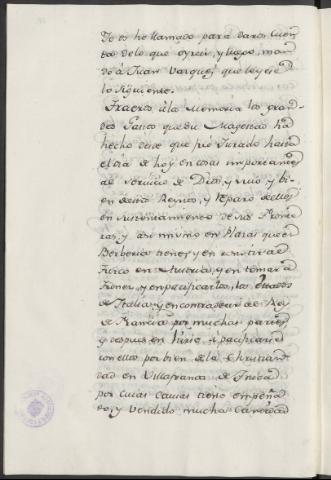 Yo os he llamado para daros cuen
tas de lo que oyreis, y luego man
dó á Juan Vazquez que leyese
lo siguiente.
Traeros á la memoria los gran
des gastos que su Magestad ha
hecho desde que fue Jurado hasta
el dia de hoy en cosas importantes
al servicio de Dios, y suio y bi
en destos Reynos, y reparo dellos
en sustentamiento de sus Fronte
ras, y asi mismo en Plazas que en
Berberia tiene, y en resistir al
Turco en Austria, y en tomar a
Tronez, y en pacificar los estados
de Italia, y encontrarse al Rey
de Francia por muchas partes
y despues en hirse á pacificar
con ellos por bien de la Christian
dad en Villafranca de Niça
por cuias causas tiene empeña
dos, y vendido mucha cantidad